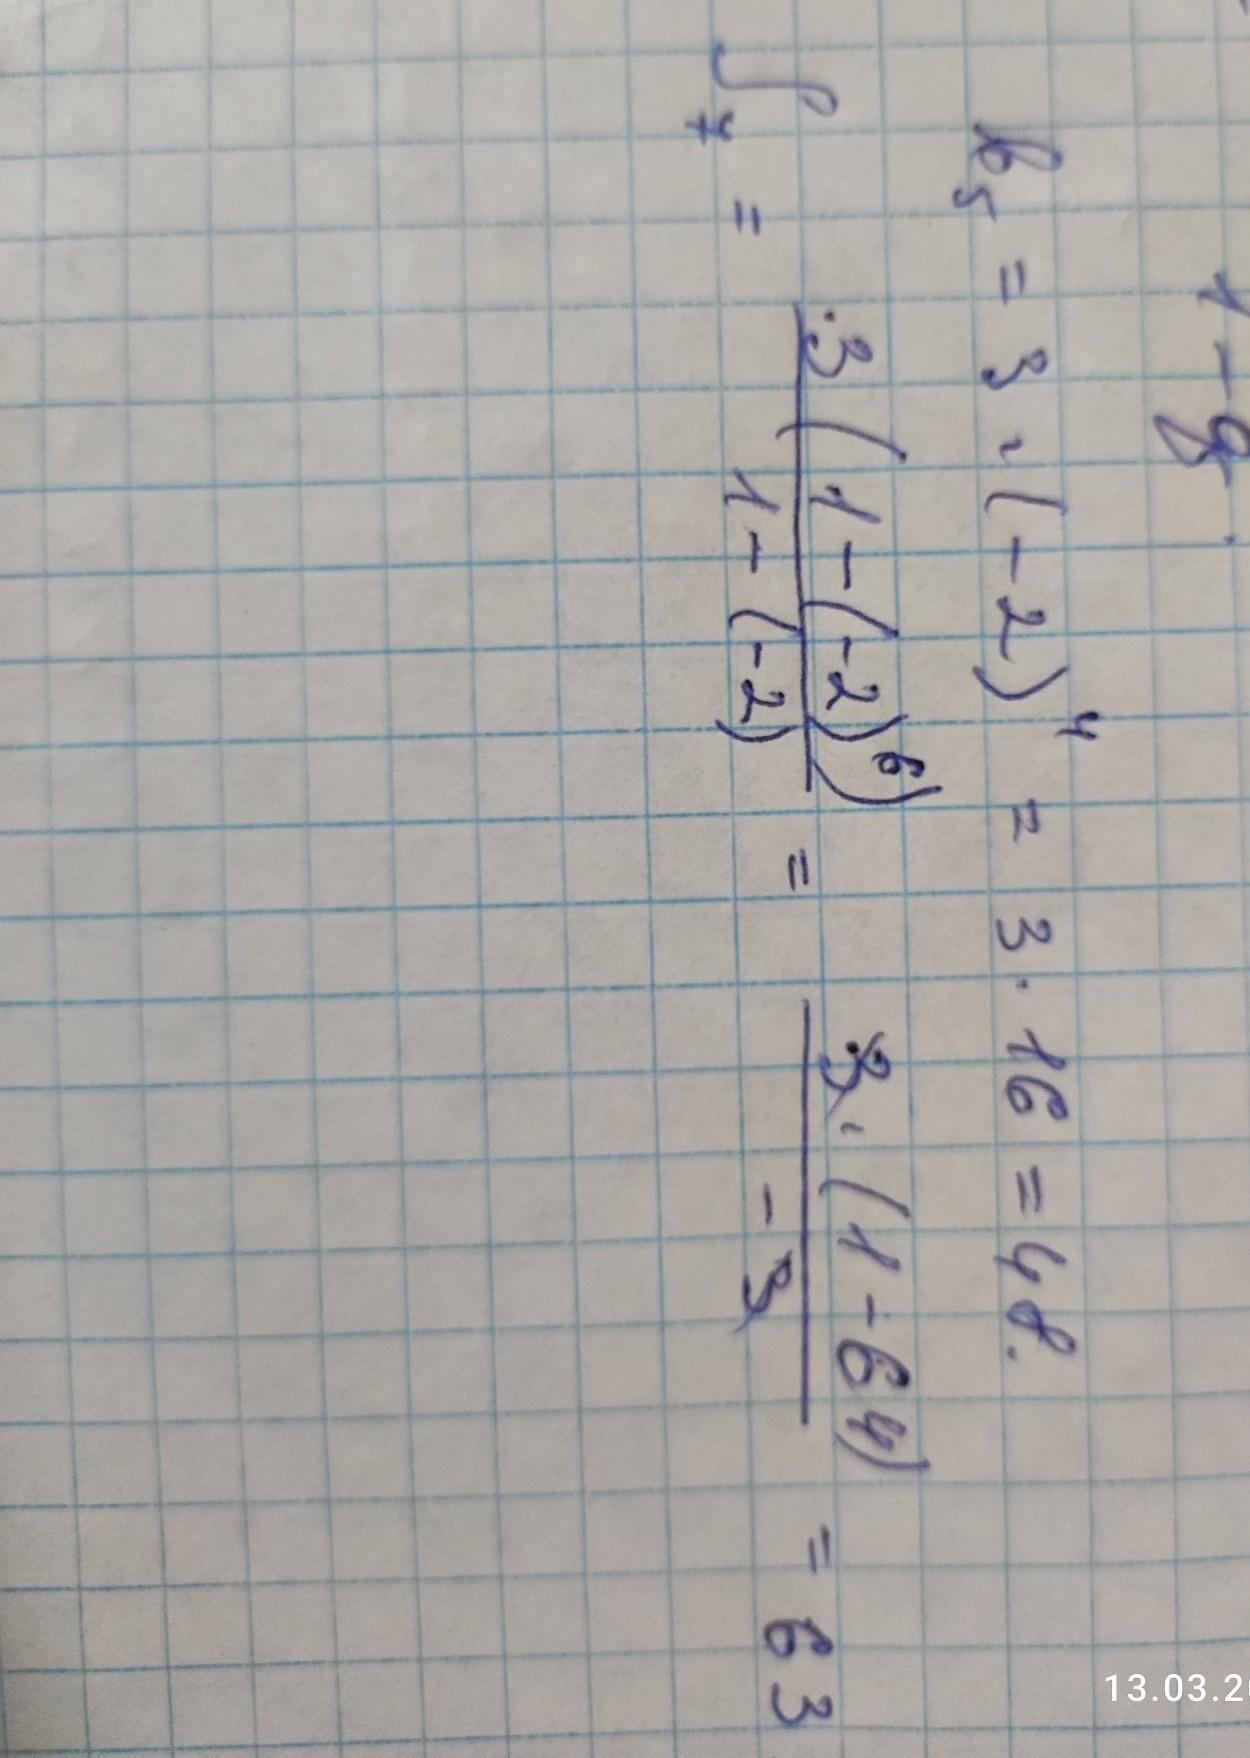 1 - q.
b₅ = 3 · (-2)⁴ = 3 · 16 = 48.
S₇ = 3(1-(-2)⁶) / 1-(-2) = 3 · (1-64) / -3 = 63
13.03.20